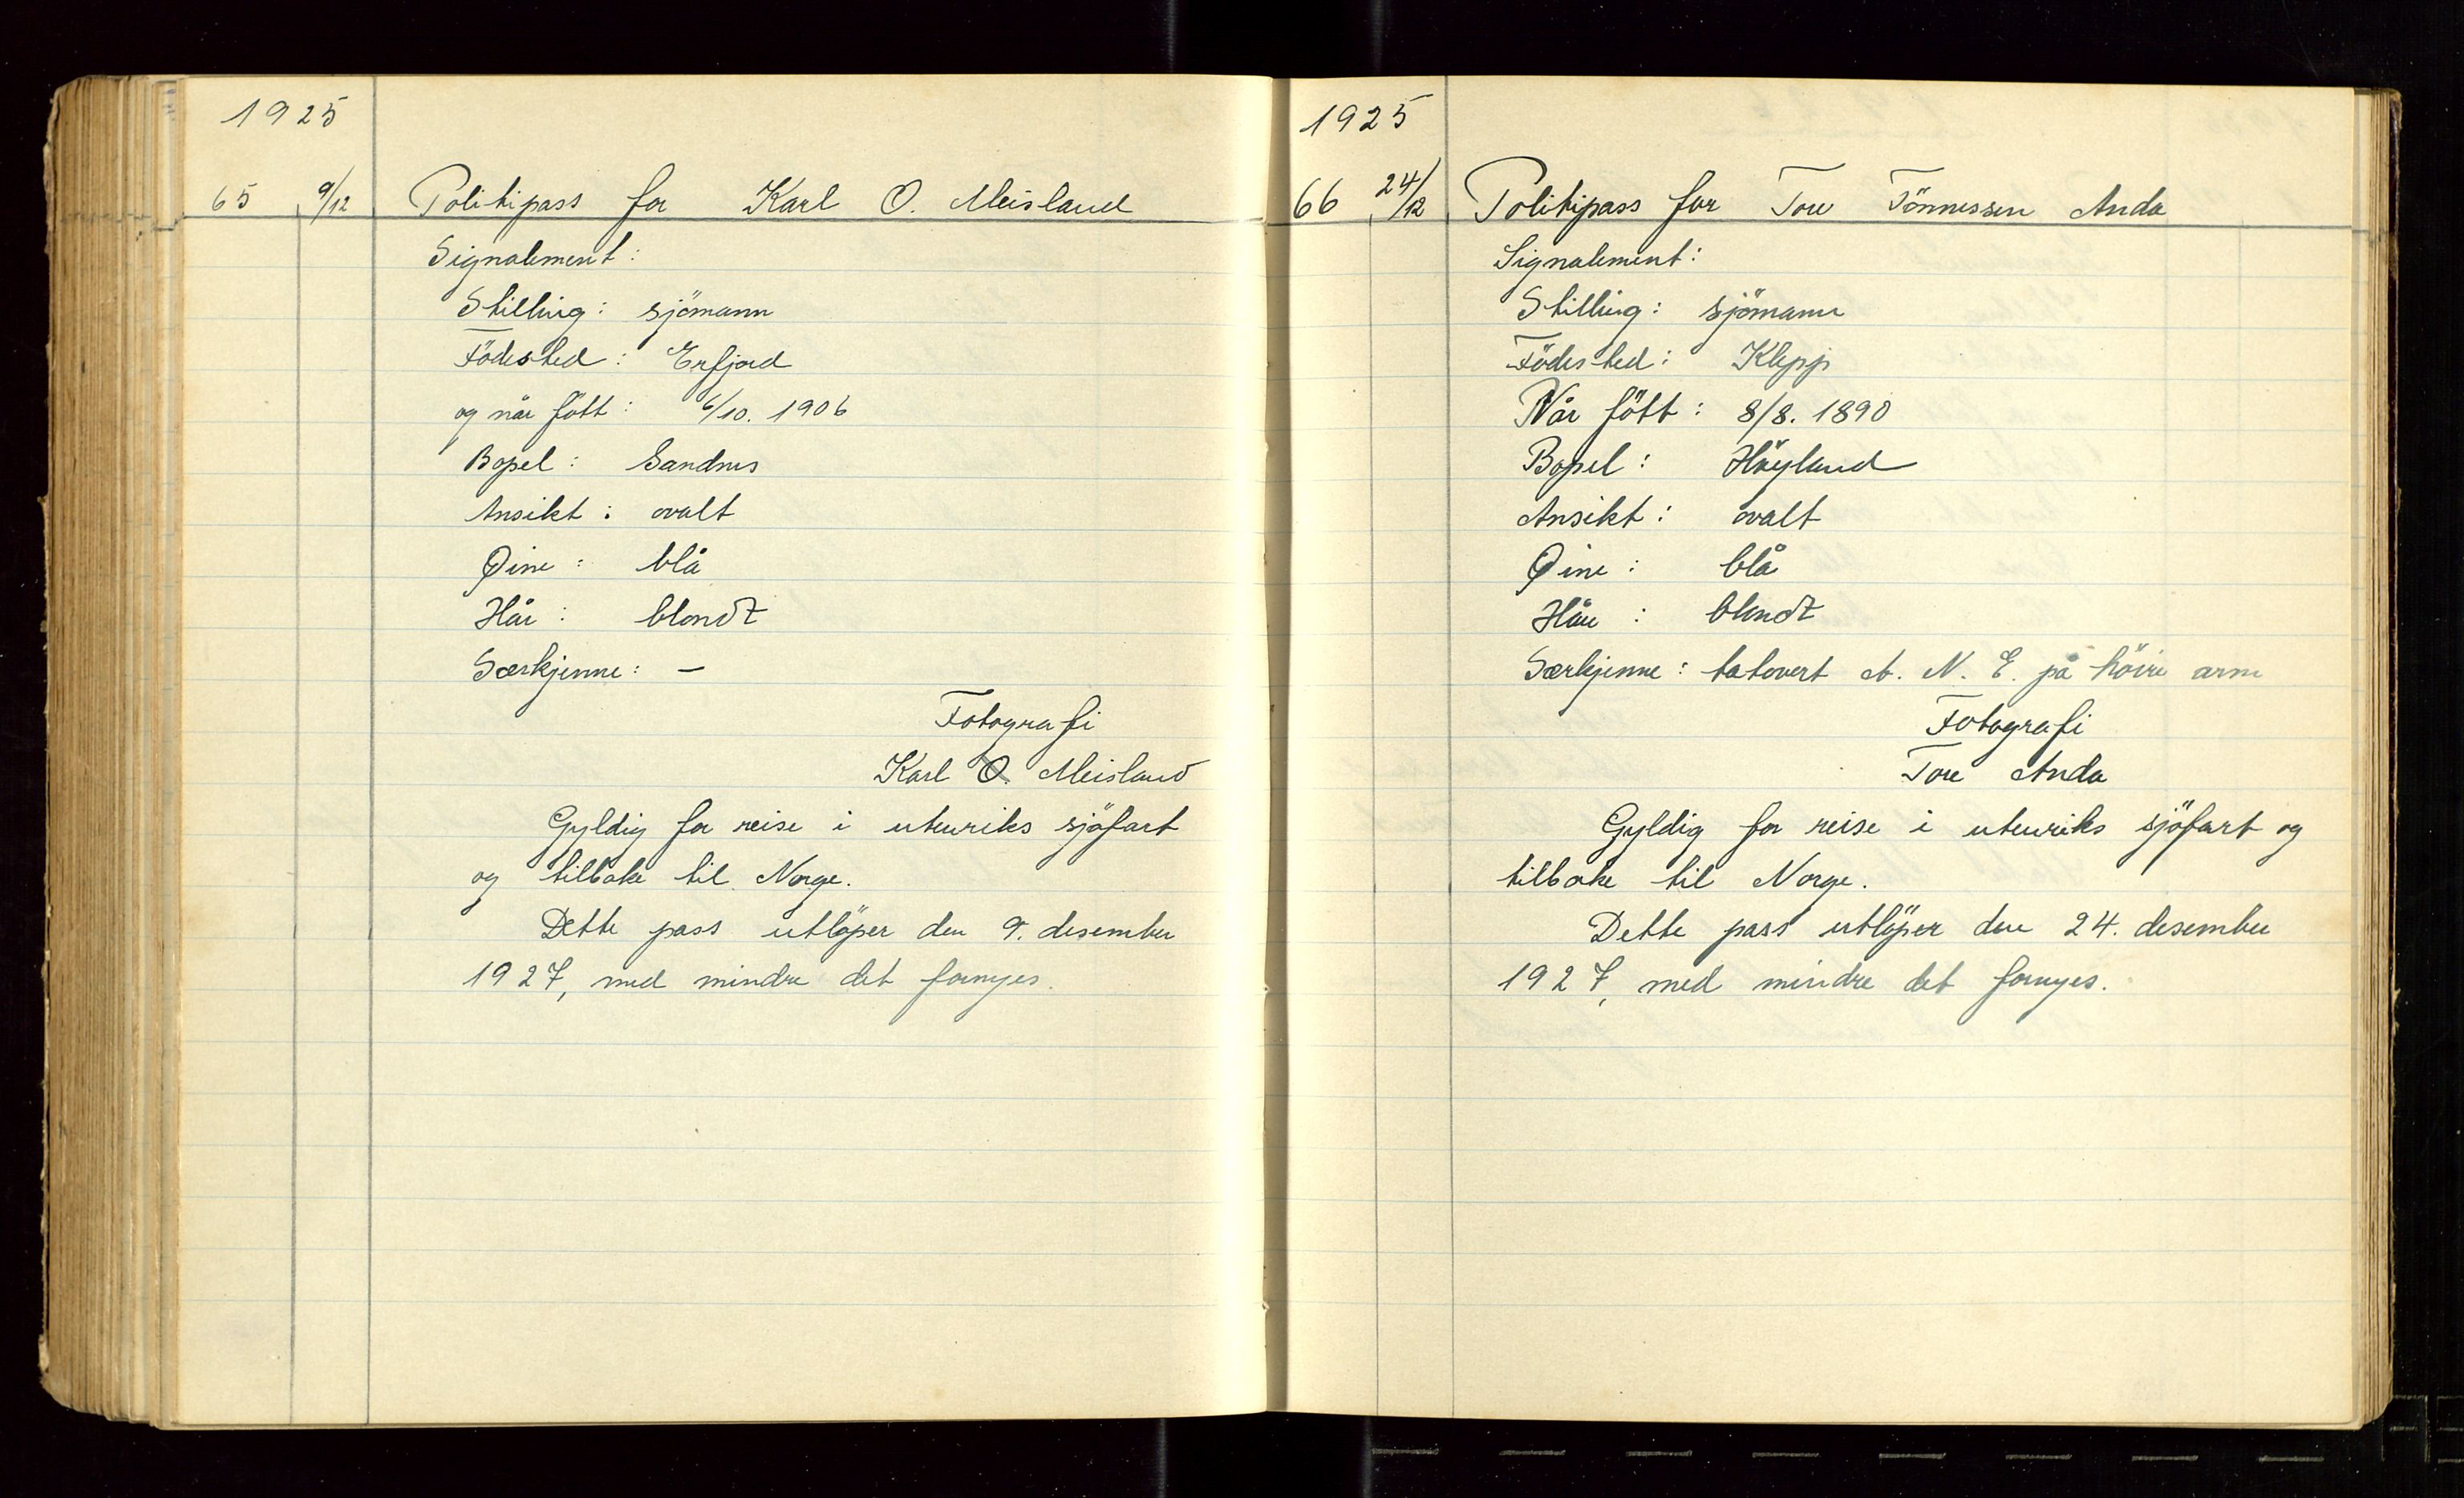 1925
65 9/12 Politipass for Karl O. Meisland
Signalement:
Stilling: sjömann
Födested: Erfjord
og når fött: 6/10. 1906
Bopel: Sandnes
Ansikt: ovalt
Øine: blå
Hår: blondt
Særkjenne: —
Fotografi
Karl O. Meisland
Gyldig for reise i utenriks sjöfart
og tilbake til Norge.
Dette pass utlöper den 9. desember
1927, med mindre det fornyes.
1925
66 24/12 Politipass for Tore Tönnessen Anda
Signalement:
Stilling: sjömann
Födested: Klepp
Når fött: 8/8. 1890
Bopel: Höyland
Ansikt: ovalt
Øine: blå
Hår: blondt
Særkjenne: tatovert A. N. E. på höire arm
Fotografi
Tore Anda
Gyldig for reise i utenriks sjöfart og
tilbake til Norge.
Dette pass utlöper den 24. desember
1927, med mindre det fornyes.